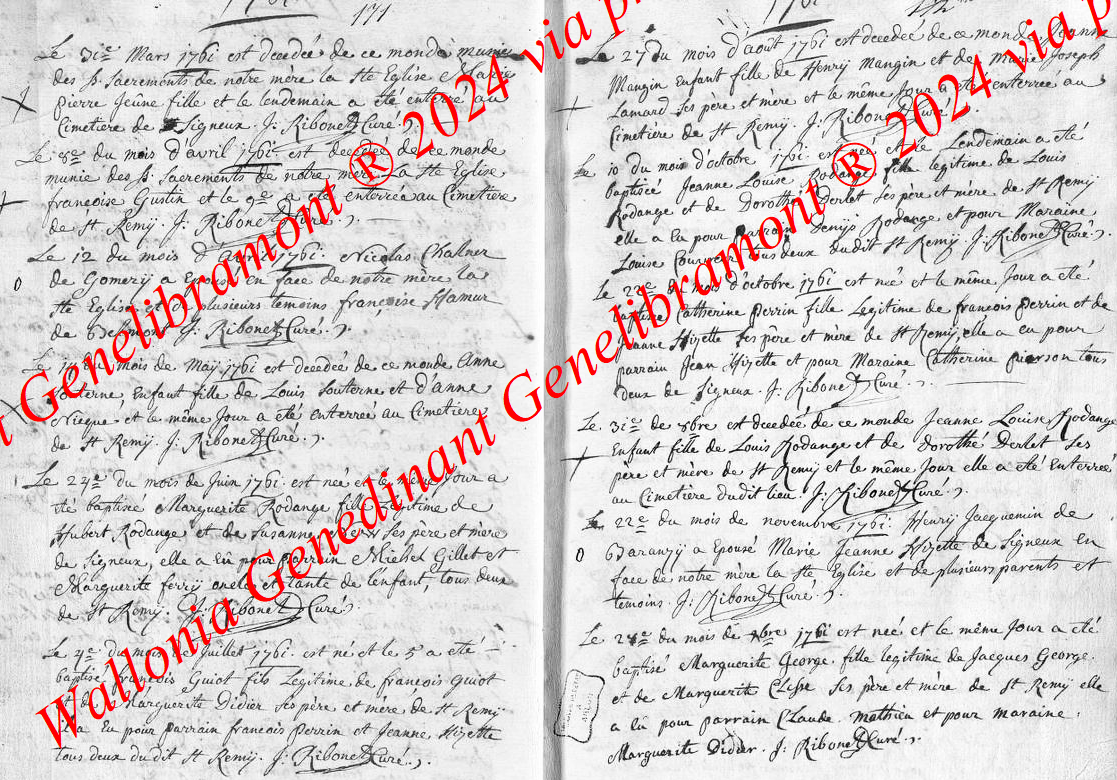 171
Le 31e Mars 1761 est decedée de ce monde munie
des st Sacrements de notre mère la Ste Eglise Marie
pierre Jeune fille et le lendemain a été enterré au
Cimetiere de Signeux. J: Ribonet Curé.
Le 8e du mois d'avril 1761 est decedée de ce monde
munie des st Sacrements de notre mère la Ste Eglise
francoise Gustin et le 9e a été enterréé au Cimetière
de St Remy. J: Ribonet Curé.
Le 12 du mois d'avril 1761. Nicolas
de Gomery a Epousé en face de notre mère la
Ste Eglise et plusieurs temoins francoise Hamur
de J: Ribonet Curé.
Le mois de Maij 1761 est decedée de ce monde Anne
Souterne Enfant fille de Louis Souterne et d'Anne
et le même Jour a été Enterreé au Cimetiere
de St Remij. J: Ribonet Curé.
Le 24e du mois de Juin 1761 est neé et le même Jour a
été baptisée Marguerite Rodange fille Legitime de
Hubert Rodange et de Susanne ses père et mère
de Signeux, elle a eu pour parrain Michel Gillet et
Marguerite ferrij oncle et tante de lenfant, tous deux
de St Remy. J: Ribonet Curé.
Le 4e du mois de Juillet 1761 est né et le 5 a été
baptisé francois Guiot fils Legitime de francois Guiot
et de Marguerite Didier ses père et mére de St Remij
il a Eu pour parrain francois Perrin et Jeanne Hizette
tous deux du dit St Remij. J: Ribonet Curé.
Le 27 du mois d'aout 1761 est decedée de ce monde Jeanne
Mangin Enfant fille de Henrij Mangin et de Marie Joseph
Lamard ses père et mère et le même Jour a été enterreé au
Cimetière de St Remij. J: Ribonet Curé
Le 10 du mois d'octobre 1761 est neé et le Lendemain a été
baptiseé Jeanne Louise Rodange fille legitime de Louis
Rodange et de dorothé Derlet ses père et mère de St Remij
elle a Eu pour parrain Denijs Rodange et pour Maraine
Louise tous deux du dit St Remij. J: Ribonet Curé.
Le du mois d'octobre 1761 est neé et le même Jour a été
baptiseé Catherine Perrin fille Legitime de francois Perrin et de
Jeanne Hizette ses père et mère de St Remij elle a eu pour
parrain Jean Hizette et pour Maraine Catherine pierson tous
deux de Signeux. J: Ribonet Curé.
Le 31e de 8bre est decedée de ce monde Jeanne Louise Rodange
Enfant fille de Louis Rodange et de Dorothé Derlet ses
père et mère de St Remij et le même Jour elle a été Enterreé
au Cimetiere dudit lieu. J: Ribonet Curé.
Le 22e du mois de novembre 1761. Henrij Jacquemin de
Baranzij a Epousé Marie Jeanne Hizette de Signeux en
face de notre mère la Ste Eglise et de plusieurs parents et
temoins. J: Ribonet Curé.
Le 28e du mois de 9bre 1761 est neé et le même Jour a été
baptisé Marguerite George fille legitime de Jacques George
et de Marguerite Clesse ses père et mère de St Remij elle
a Eu pour parrain Claude Mathieu et pour maraine
Marguerite Didier. J: Ribonet Curé.
Genelibramont ® 2024 via
Wallonia Genedinant Genelibramont ® 2024 via